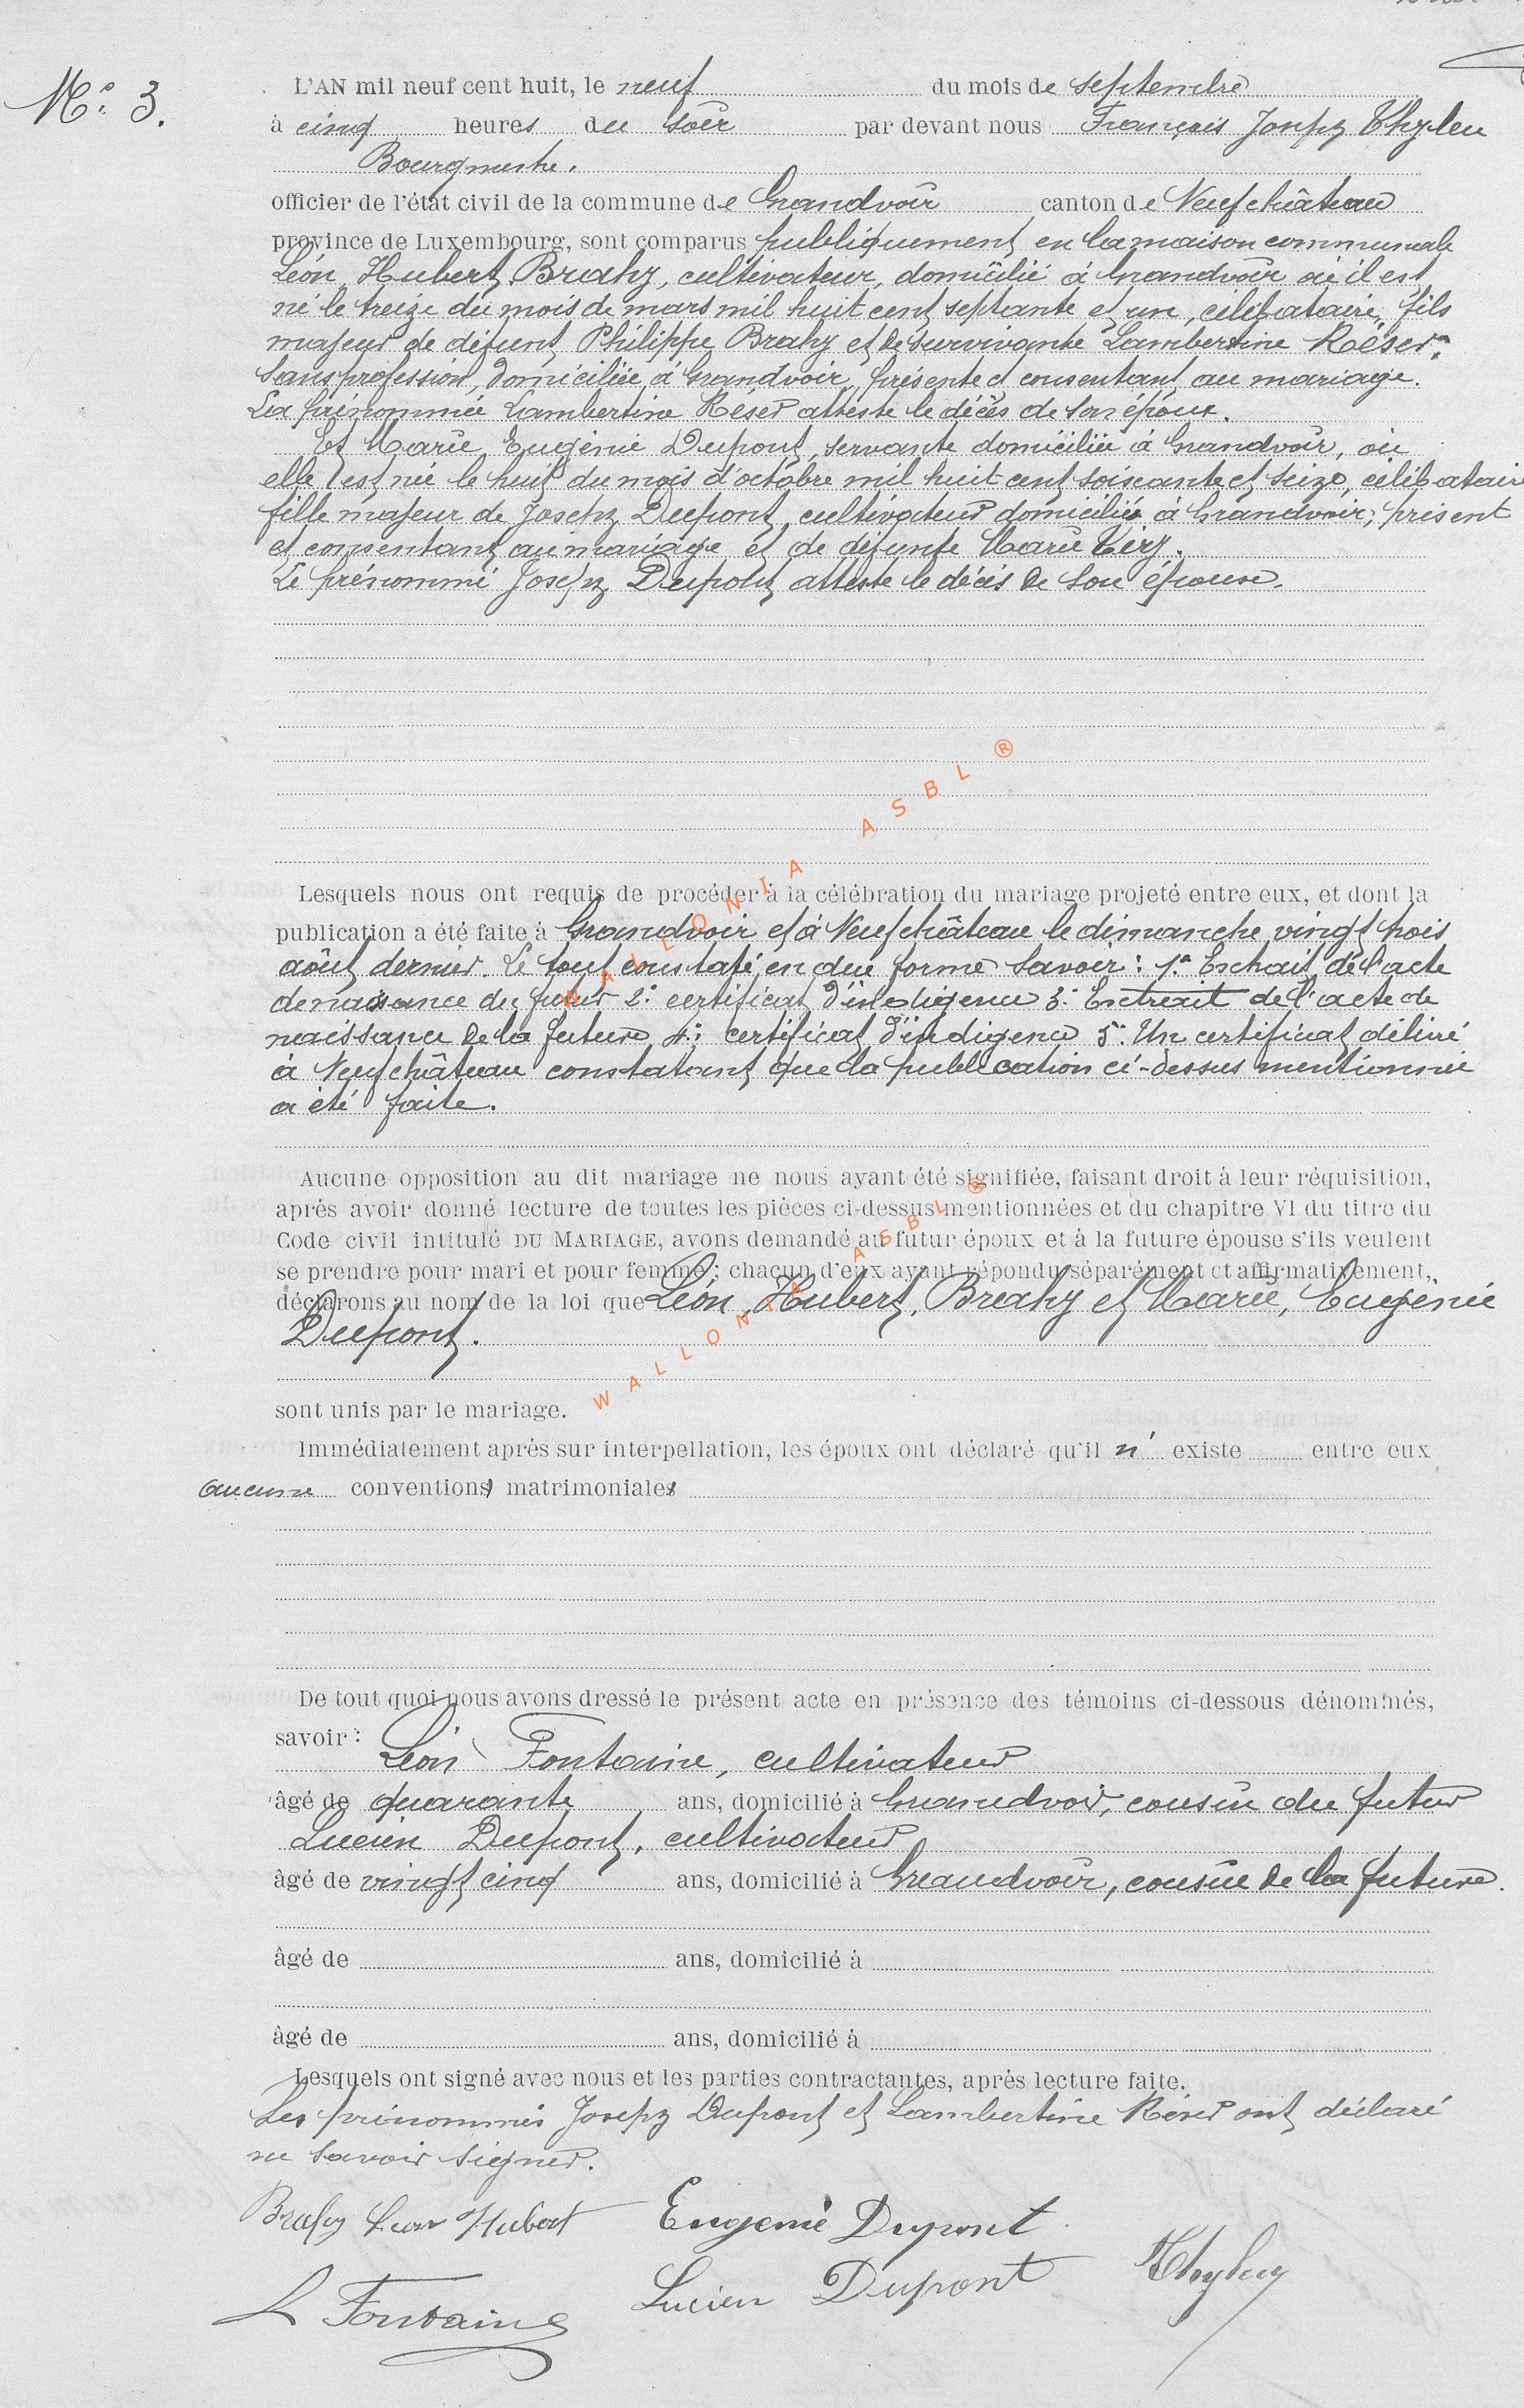 N° 3.
L'AN mil neuf cent huit, le neuf du mois de septembre
à cinq heures du soir par devant nous François Joseph Thylen
Bourgmestre.
officier de l'état civil de la commune de Grandvoir canton de Neufchâteau
province de Luxembourg, sont comparus publiquement en la maison communale
Léon, Hubert, Brahy, cultivateur, domicilié à Grandvoir où il est
né le treize du mois de mars mil huit cent septante et un, célibataire, fils
majeur de défunt Philippe Brahy et de survivante Lambertine Réser.
Sans profession, domiciliée à Grandvoir, présente et consentant au mariage.
La prénommée Lambertine Réser atteste le décès de son époux.
Et Marie, Eugénie Dupont, servante domiciliée à Grandvoir, où
elle est née le huit du mois d'octobre mil huit cent soixante et seize, célibataire
fille majeur de Joseph Dupont, cultivateur domicilié à Grandvoir, présent
et consentant au mariage et de défunte Marie
Le prénommé Joseph Dupont atteste le décès de son épouse.
Lesquels nous ont requis de procéder à la célébration du mariage projeté entre eux, et dont la
publication a été faite à Grandvoir et à Neufchâteau le dimanche vingt trois
août dernier. Le tout constaté en due forme Savoir : 1° Extrait de l'acte
de naissance du futur 2° certificat d'indigence 3° Extrait de l'acte de
naissance de la future 4° certificat d'indigence 5° Un certificat délivré
à Neufchâteau constatant que la publication ci-dessus mentionnée
a été faite.
Aucune opposition au dit mariage ne nous ayant été signifiée, faisant droit à leur réquisition,
après avoir donné lecture de toutes les pièces ci-dessus mentionnées et du chapitre VI du titre du
Code civil intitulé DU MARIAGE, avons demandé au futur époux et à la future épouse s'ils veulent
se prendre pour mari et pour femme ; chacun d'eux ayant répondu séparément et affirmativement,
déclarons au nom de la loi que Léon, Hubert, Brahy et Marie, Eugénie
Dupont.
sont unis par le mariage.
Immédiatement après sur interpellation, les époux ont déclaré qu'il n' existe entre eux
aucune conventions matrimoniales
De tout quoi nous avons dressé le présent acte en présence des témoins ci-dessous dénommés,
savoir :
Léon Fontaine, cultivateur
âgé de quarante ans, domicilié à Grandvoir, cousin du futur
Lucien Dupont, cultivateur
âgé de vingt cinq ans, domicilié à Grandvoir, cousin de la future.
âgé de ans, domicilié à
âgé de ans, domicilié à
Lesquels ont signé avec nous et les parties contractantes, après lecture faite.
Les prénommés Joseph Dupont et Lambertine Réser ont déclaré
ne savoir signer.
Brahy Léon Hubert Eugenie Dupont
L Fontaine Lucien Dupont Thylen
WALLONIA ASBL ®
WALLONIA ASBL ®